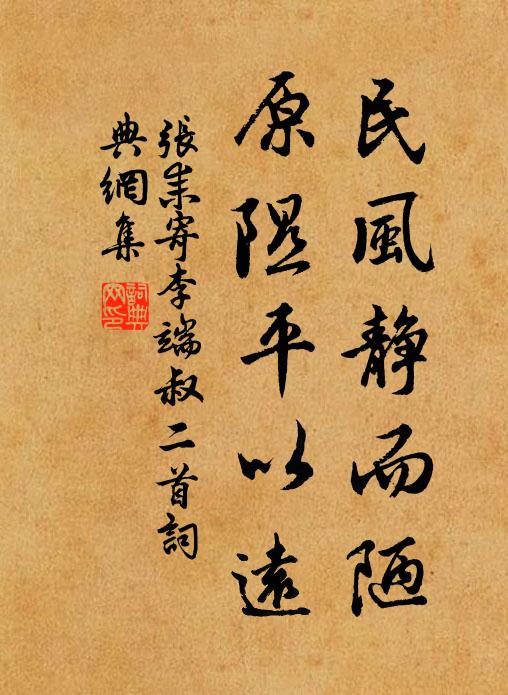 民風静而陋
原隰平以遠
張耒寄李端叔二首詞
典網集
詞典
網印